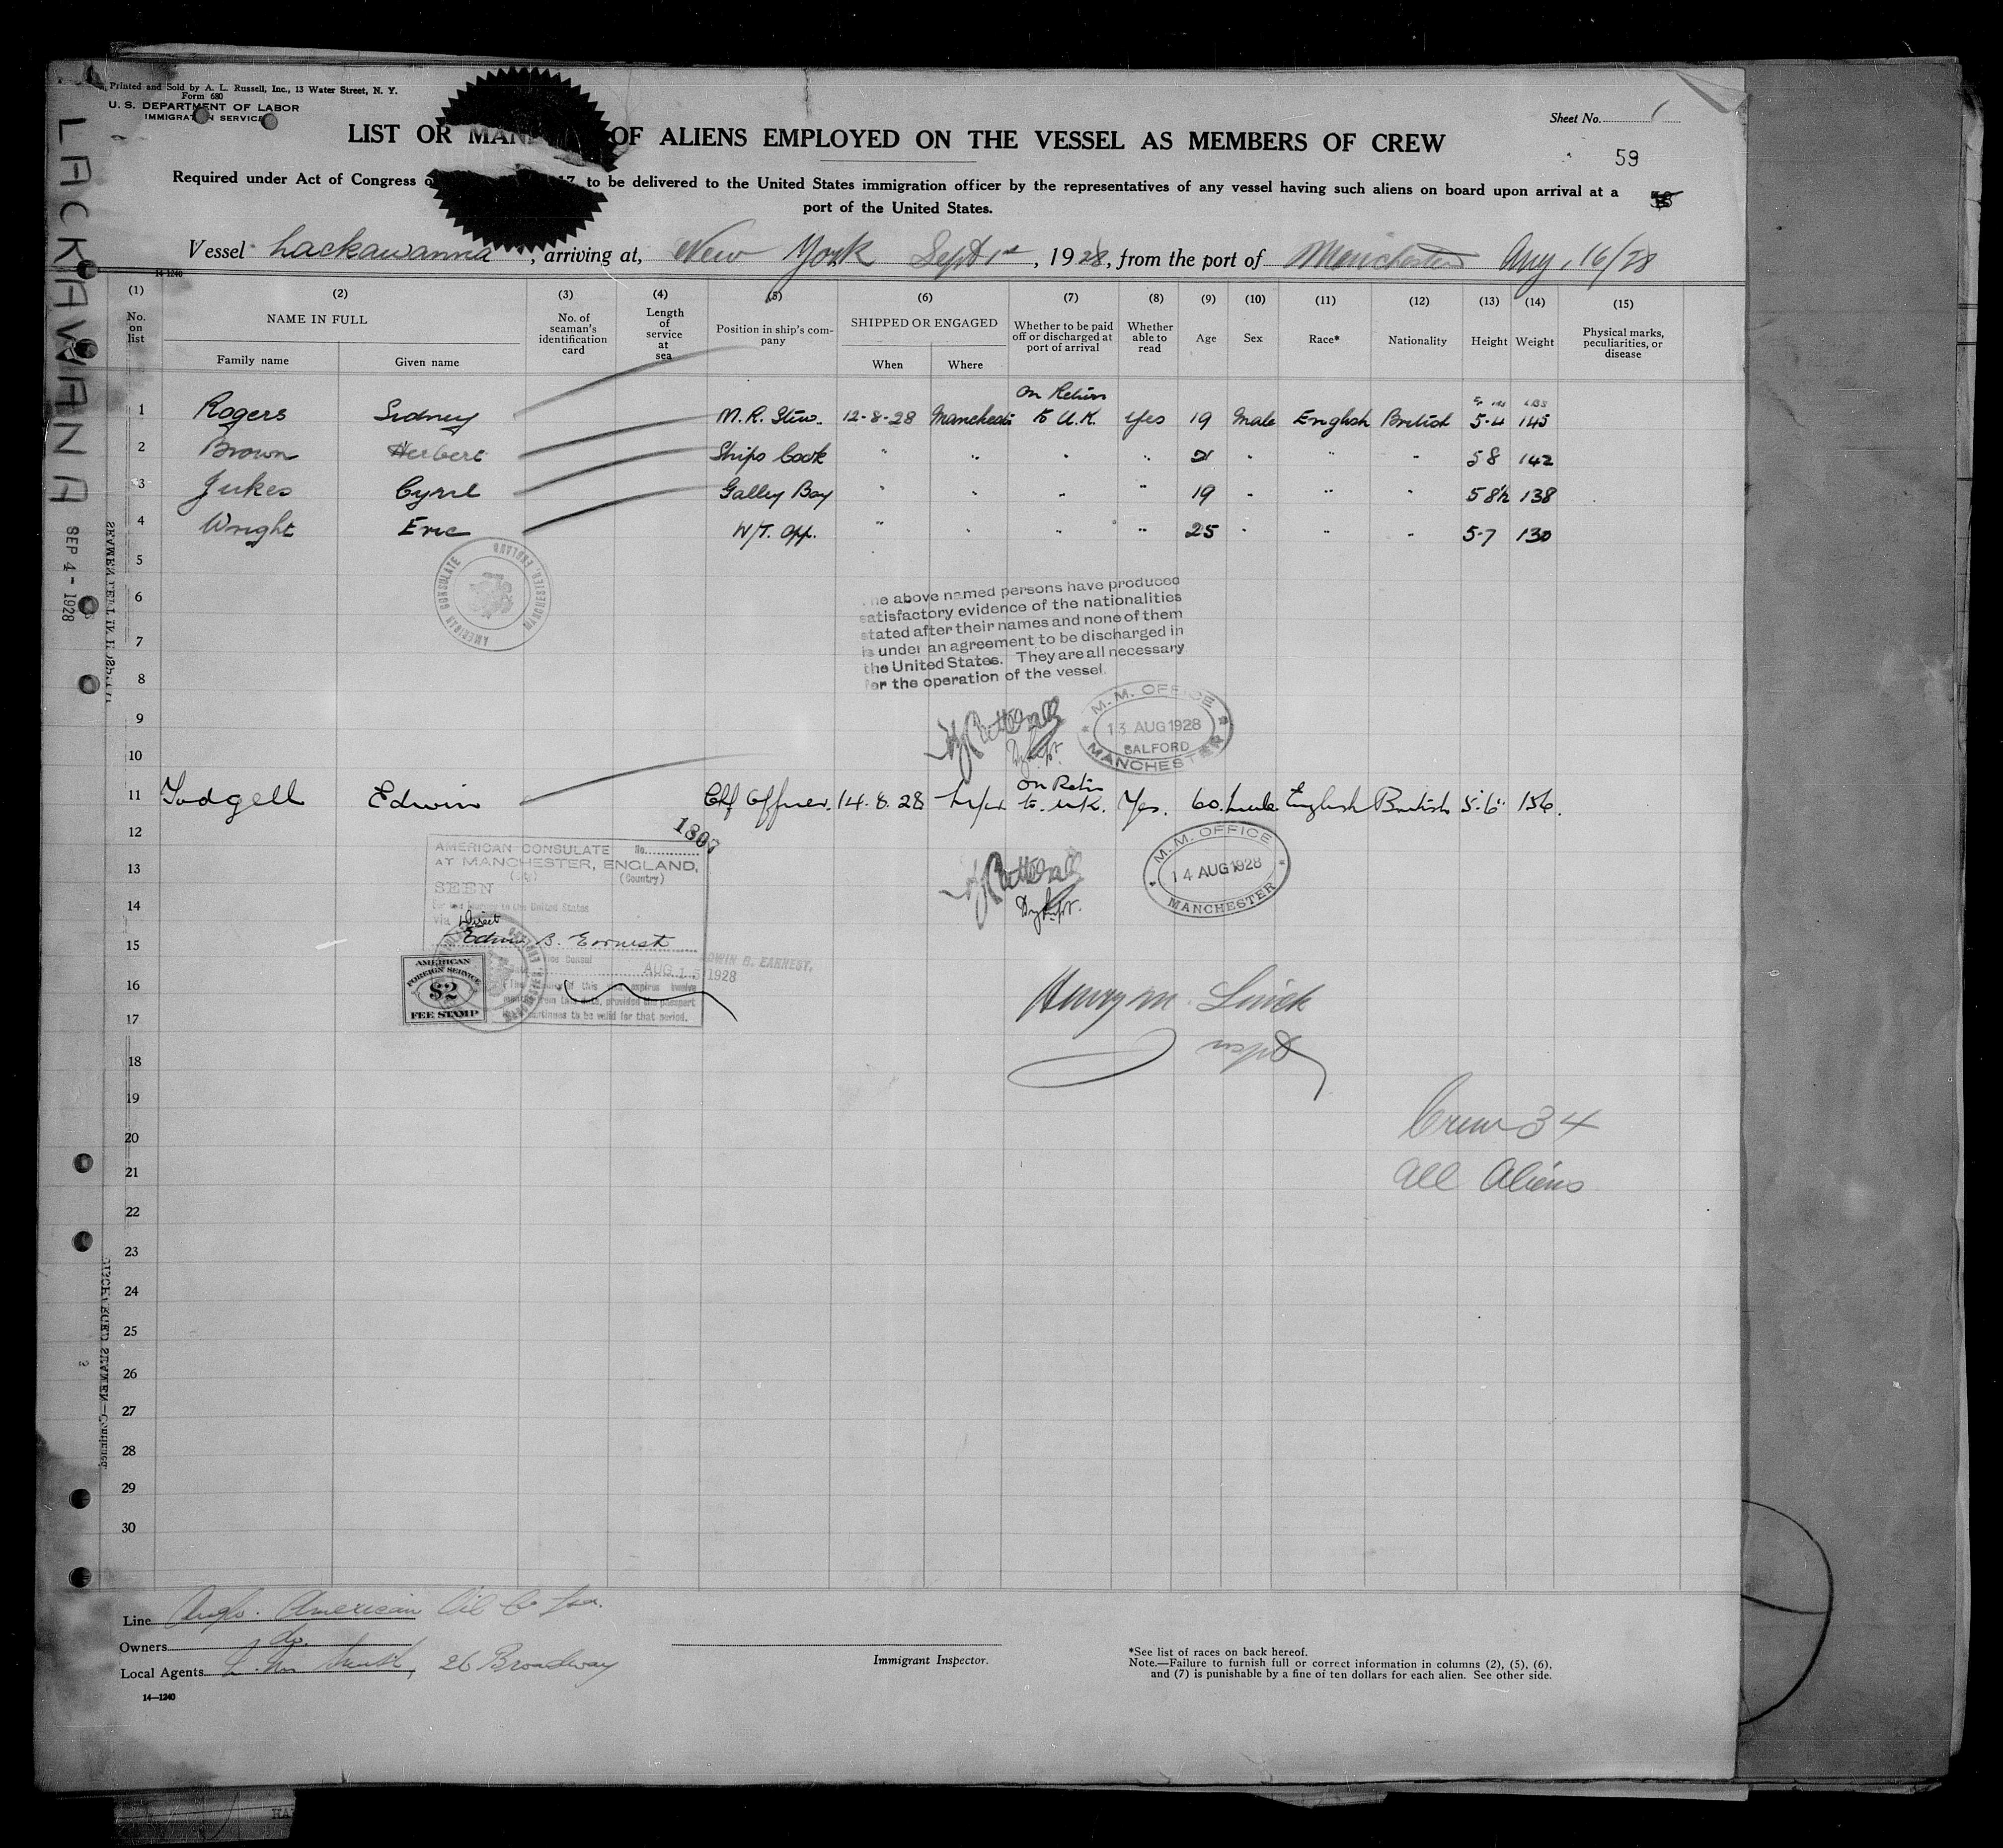 Printed and Sold by A. L. Russell, Inc., 13 Water Street, N. Y.
Form 680
U. S. DEPARTMENT OF LABOR
IMMIGRATION SERVICE
Sheet No. 1
LIST OR MAN OF ALIENS EMPLOYED ON THE VESSEL AS MEMBERS OF CREW
59
Required under Act of Congress o 17, to be delivered to the United States immigration officer by the representatives of any vessel having such aliens on board upon arrival at a
port of the United States.
Vessel Lackawanna, arriving at, New York Sept 1st, 1928, from the port of Manchester Aug, 16/28
14-1240
LACKAWANNA
SEP 4 - 1928
(1) (2) (3) (4) (5) (6) (7) (8) (9) (10) (11) (12) (13) (14) (15)
No. on list
NAME IN FULL
Family name Given name
No. of seaman's identification card
Length of service at sea
Position in ship's company
SHIPPED OR ENGAGED
When Where
Whether to be paid off or discharged at port of arrival
Whether able to read
Age Sex Race* Nationality Height Weight
Physical marks, peculiarities, or disease
On Return
1 Rogers Sidney M.R. Stew. 12-8-28 Manchester to U.K. Yes 19 Male English British 5-4 145
2 Brown Herbert Ships Cook " " " " 21 " " " 5 8 142
3 Jukes Cyril Galley Boy " " " " 19 " " " 5 8½ 138
4 Wright Eric W/T. Opp. " " " " 25 " " " 5-7 130
5
AMERICAN CONSULATE MANCHESTER, ENGLAND
6
he above named persons have produced
satisfactory evidence of the nationalities
stated after their names and none of them
7
is under an agreement to be discharged in
the United States. They are all necessary
8
for the operation of the vessel.
9
M. M. OFFICE
13 AUG 1928
SALFORD
MANCHESTER
10
On Retn
11 Edwin Chf Officer. 14.8.28 to U.K. Yes. 60. Male English British 5'.6" 156.
12
1807
AMERICAN CONSULATE No.
AT MANCHESTER, ENGLAND,
(City) (Country)
13
SEEN
M. M. OFFICE
14 AUG 1928
MANCHESTER
14
For the journey to the United States
Via Direct
15
Edwin B. Earnest
Vice Consul
EDWIN B. EARNEST,
AUG 15 1928
16
AMERICAN
FOREIGN SERVICE
$2
FEE STAMP
of this visa expires twelve
months from this date, provided the passport
continues to be valid for that period.
Henry M.
17
18
19
Crew 34
20
21
All Aliens
22
23
24
25
26
27
28
29
30
DISCHARGED SEAMEN—Continued.
Line Anglo. American Oil Co Ltd.
Owners do.
Local Agents 26 Broadway
Immigrant Inspector.
*See list of races on back hereof.
Note.—Failure to furnish full or correct information in columns (2), (5), (6),
and (7) is punishable by a fine of ten dollars for each alien. See other side.
14—1240